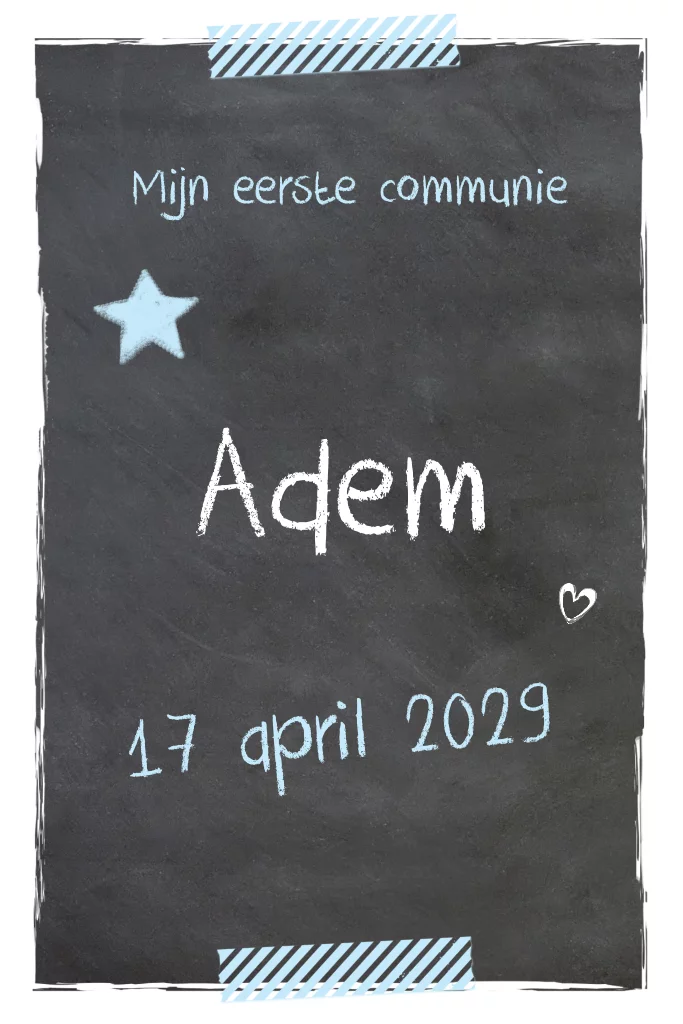 Mijn eerste communie
Adem
17 april 2029